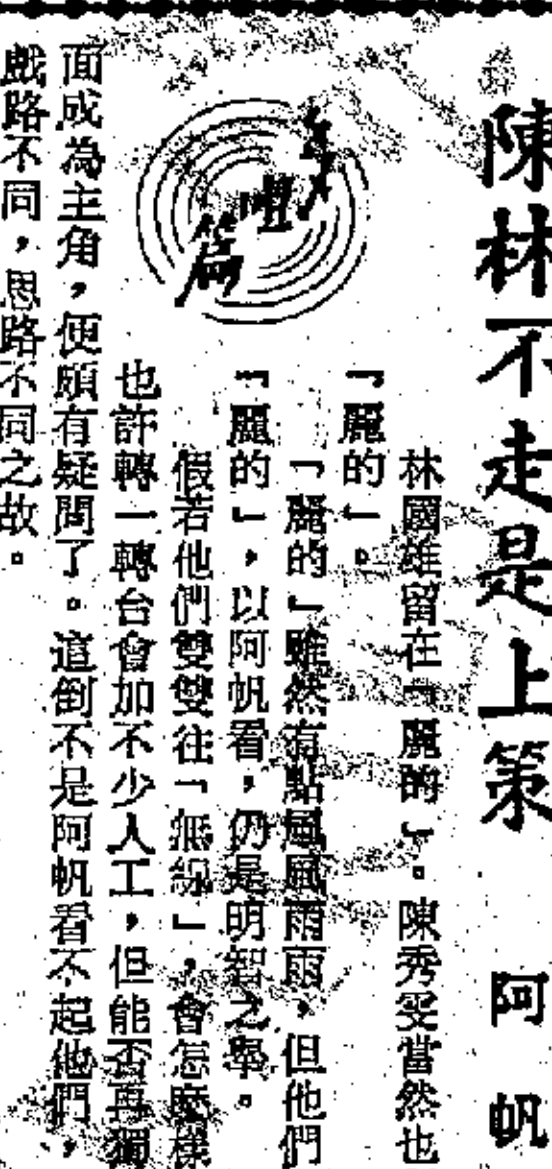 陳林不走是上策
阿帆
林國雄留在「麗的」。陳秀雯當然也
「麗的」。
「麗的」雖然有點風風雨雨,但他們
「麗的」,以阿帆看,仍是明智之舉。
假若他們雙雙往「無綫」,會怎麼樣
也許轉一轉台會加不少人工,但能否再獨
面成為主角,便頗有疑問了。這倒不是阿帆看不起他們,
戲路不同,思路不同之故。